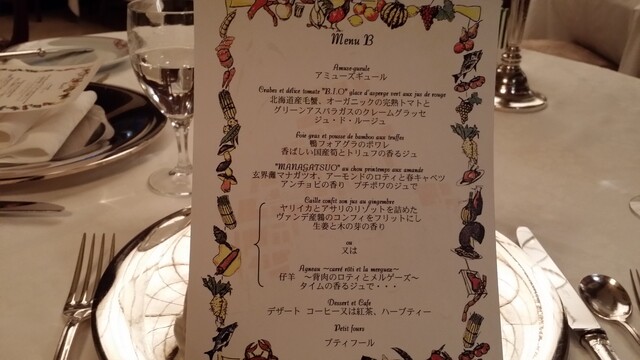 Menu B
Amuse-gueule
アミューズギュール
Crabes et délice tomate "B.I.O" glace d'asperge vert aux jus de rouge
北海道産毛蟹、オーガニックの完熟トマトと
グリーンアスパラガスのクレームグラッセ
ジュ・ド・ルージュ
Foie gras et pousse de bamboo aux truffes
鴨フォアグラのポワレ
香ばしい国産筍とトリュフの香るジュ
"MANAGATSUO" au chou printemps aux amande
玄界灘マナガツオ、アーモンドのロティと春キャベツ
アンチョビの香り プチポワのジュで
Caille confit son jus au gingembre
ヤリイカとアサリのリゾットを詰めた
ヴァンデ産鶉のコンフィをフリットにし
生姜と木の芽の香り
ou
又は
Agneau ～carré rôti et la merguez～
仔羊 ～背肉のロティとメルゲーズ～
タイムの香るジュで・・・
Dessert et Cafe
デザート コーヒー又は紅茶、ハーブティー
Petit fours
プティフール